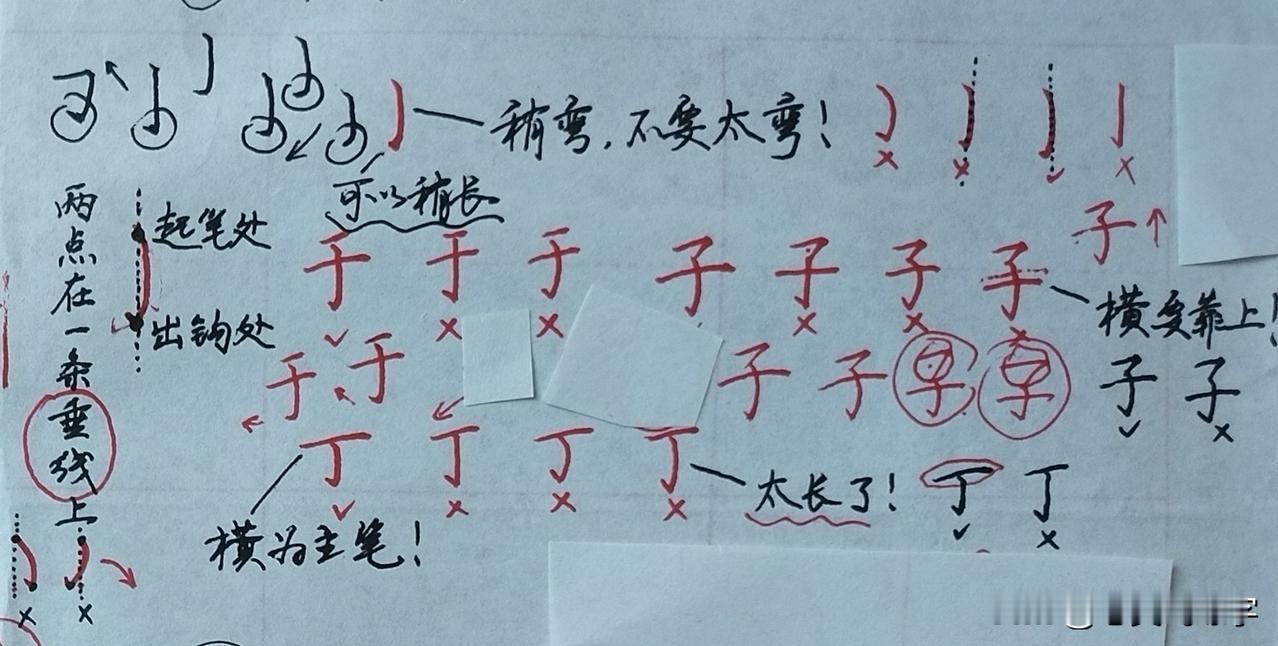 稍弯,不要太弯!
可以稍长
两点在一条垂线上
起笔处
出钩处
于 于 于 子 子 子 子 子
横要靠上!
于 于 子 子 子 子
丁 丁 丁 丁
太长了!
丁 丁
横为主笔!